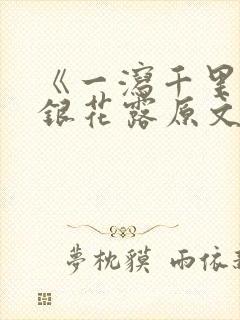 《一瀉千里
銀花露原文
夢枕貘 雨依